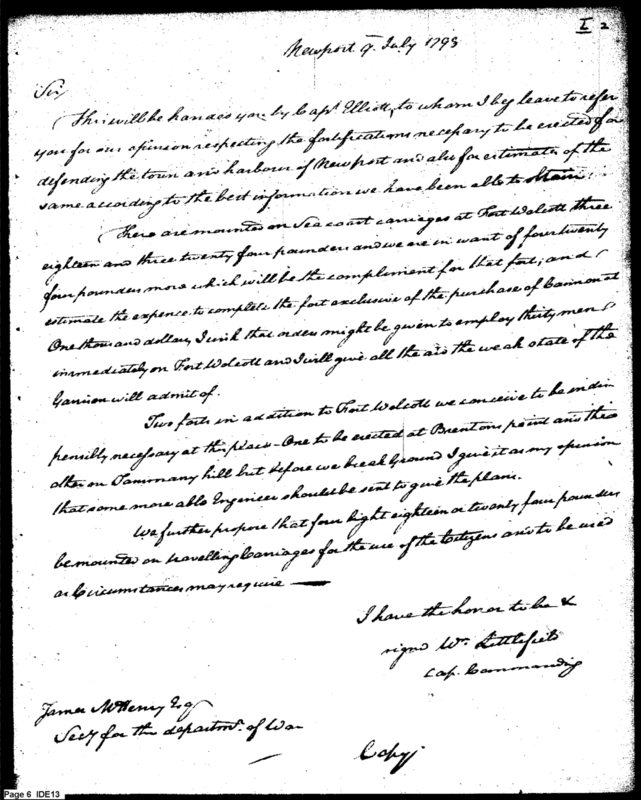 I 2
Newport 9. July 1798
Sir
This will be handed you by Capt. Elliott, to whom I beg leave to refer
you for our opinion respecting the fortifications necessary to be erected for
defending the town and harbour of Newport and also for estimates of the
same according to the best information we have been able to obtain.
There are mounted on Sea coast carriages at Fort Wolcott three
eighteen and three twenty four pounders and we are in want of four twenty
four pounders more which will be the complement for that fort; and
estimate the expence to complete the fort exclusive of the purchase of Cannon at
One thousand dollars, I wish that orders might be given to employ thirty men
immediately on Fort Wolcott and I will give all the aid the weak state of the
Garrison will admit of.
Two forts in addition to Fort Wolcott we conceive to be indis
pensibly necessary at this place - One to be erected at Brentons point and the
other on Tammany hill but before we break Ground I give it as my opinion
that some more able Engineer should be sent to give the plans.
We further propose that four light eighteen or twenty four pounders
be mounted on travelling Carriages for the use of the Citizens and to be used
as Circumstances may require —
I have the honor to be &
signd Wm. Littlefield
Cap. Commandig
James McHenry Esq
Secy for the departmt. of War
Copy
Page 6 IDE13